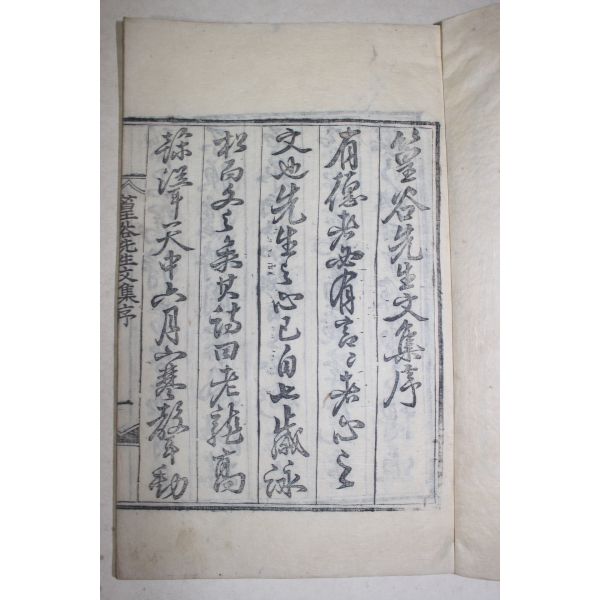 篁谷先生文集序
有德者必有言〻者心之
文也先生之心已自七歲詠
松而文之矣其詩曰老龍高
天中六月寒聲動
篁谷先生文集序 一